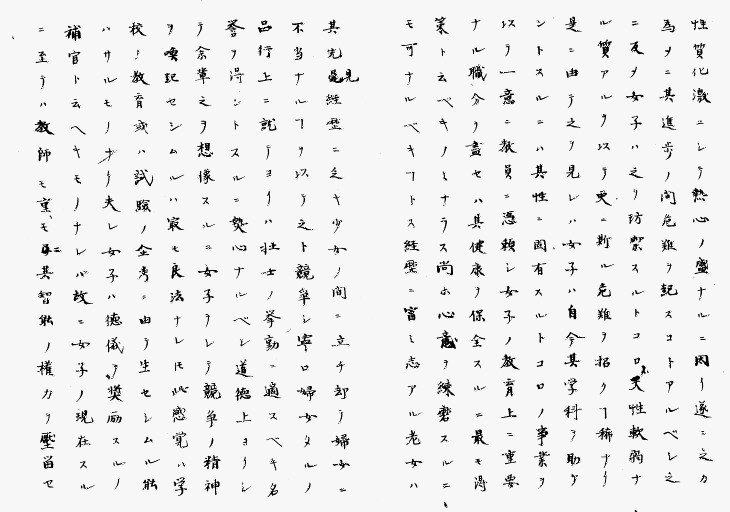 性質化激ニシテ熱心ノ盛ナルニ因リ遂ニ之カ
為メニ其進歩ノ間危難ヲ記スコトアルベシ之
ニ反メ女子ハ之ヲ防禦スルトコロノ天性軟弱ナ
ル質アルヲ以テ更ニ斯ル危難ヲ招クヿ稀ナリ
是ニ由テ之ヲ見レハ女子ハ自今其学科ヲ助ケ
ントスルニハ其性ニ固有スルトコロノ事業ヲ
以テ一意ニ教員ニ憑頼シ女子ノ教育上ニ重要
ナル職分ヲ盡セハ其健康ヲ保全スルニ最モ得
策ト云ベキノミナラス尚ホ心意ヲ練磨スルニ
モ可ナルベキヿトス経歴ニ富ミ志アル老女ハ
其先見経歴ニ乏キ少女ノ間ニ立チ却テ婦女ニ
不当ナルヿヲ以テ之ト競争シ寧ロ婦女タルノ
品行上ニ就テヨリハ壮士ノ挙動ニ適スベキ名
誉ヲ得ントスルニ熱心ナルベシ道徳上ヨリシ
テ余輩之ヲ想像スルニ女子ヲシテ競争ノ精神
ヲ喚起セシムルハ最モ良法ナレ𪜈此感覚ハ学
校ノ教育或ハ試験ノ全考ニ由テ生セシムル能
ハサルモノナリ夫レ女子ハ徳儀ヲ奨励スルノ
補官ト云ヘキモノナレバ故ニ女子ノ現在スル
ニ至テハ教師モ重モニ其智能ノ権力ヲ壓留セ